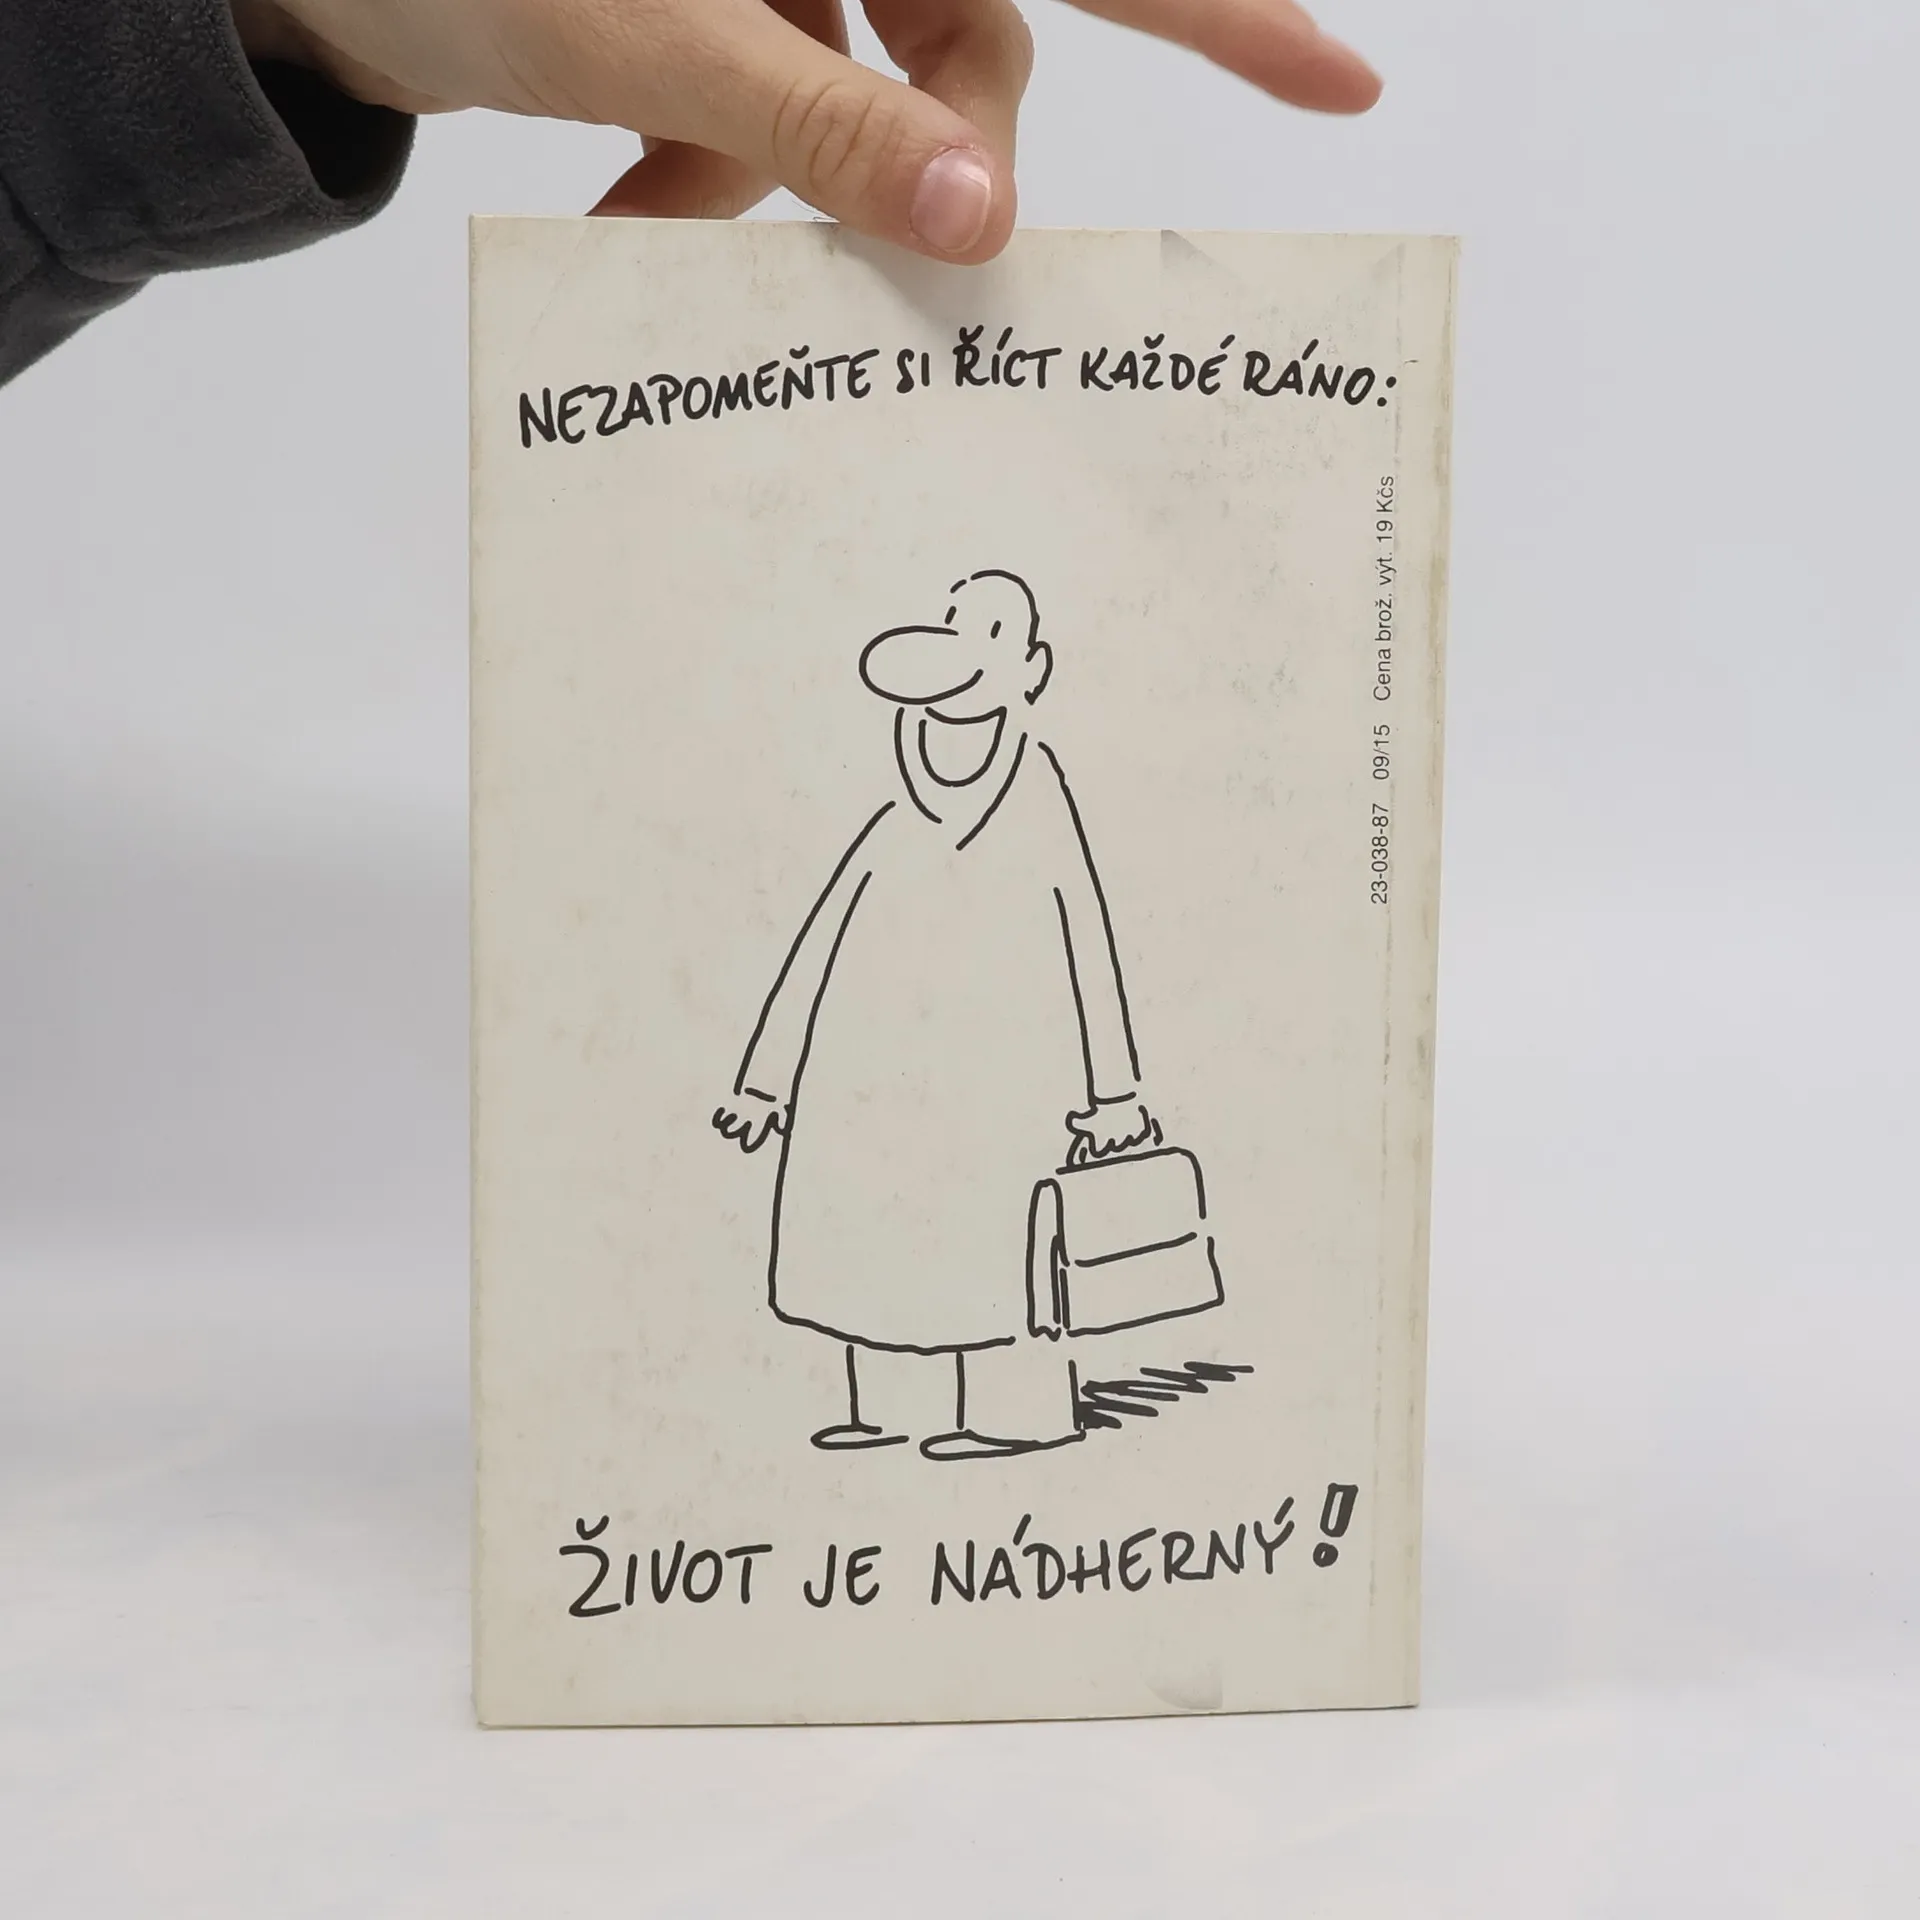 NEZAPOMEŇTE SI ŘÍCT KAŽDÉ RÁNO:
23-038-87 09/15 Cena brož. výt. 19 Kčs
ŽIVOT JE NÁDHERNÝ!